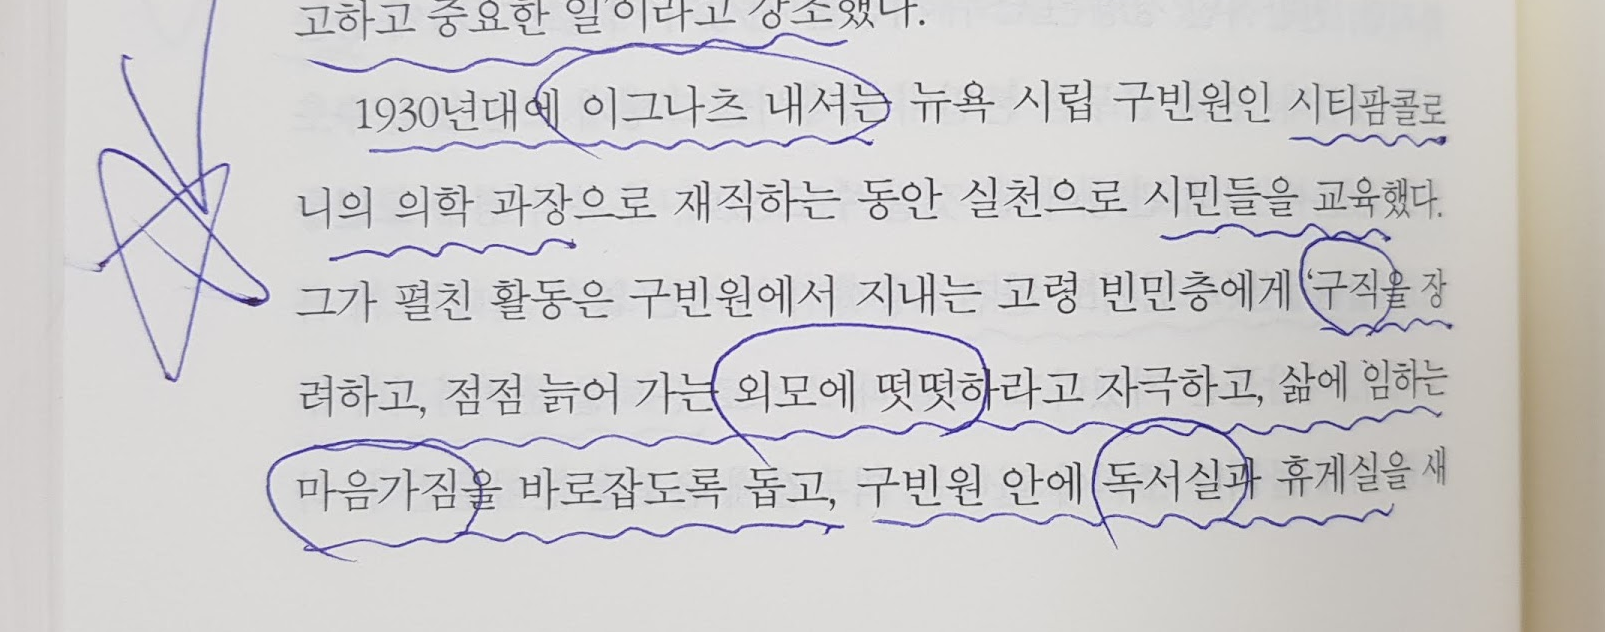 고하고 중요한 일'이라고 강조했다.
1930년대에 이그나츠 내셔는 뉴욕 시립 구빈원인 시티팜콜로
니의 의학 과장으로 재직하는 동안 실천으로 시민들을 교육했다.
그가 펼친 활동은 구빈원에서 지내는 고령 빈민층에게 '구직을 장
려하고, 점점 늙어 가는 외모에 떳떳하라고 자극하고, 삶에 임하는
마음가짐을 바로잡도록 돕고, 구빈원 안에 독서실과 휴게실을 새